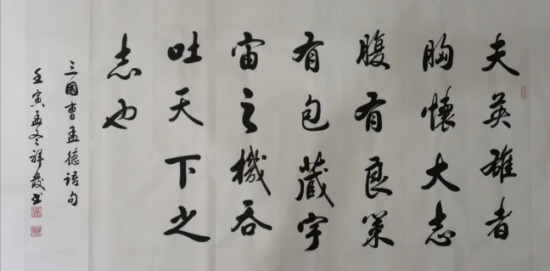 夫英雄者
胸懷大志
腹有良策
有包藏宇
宙之機吞
吐天下之
志也
三國曹孟德語句
壬寅孟冬祥發書